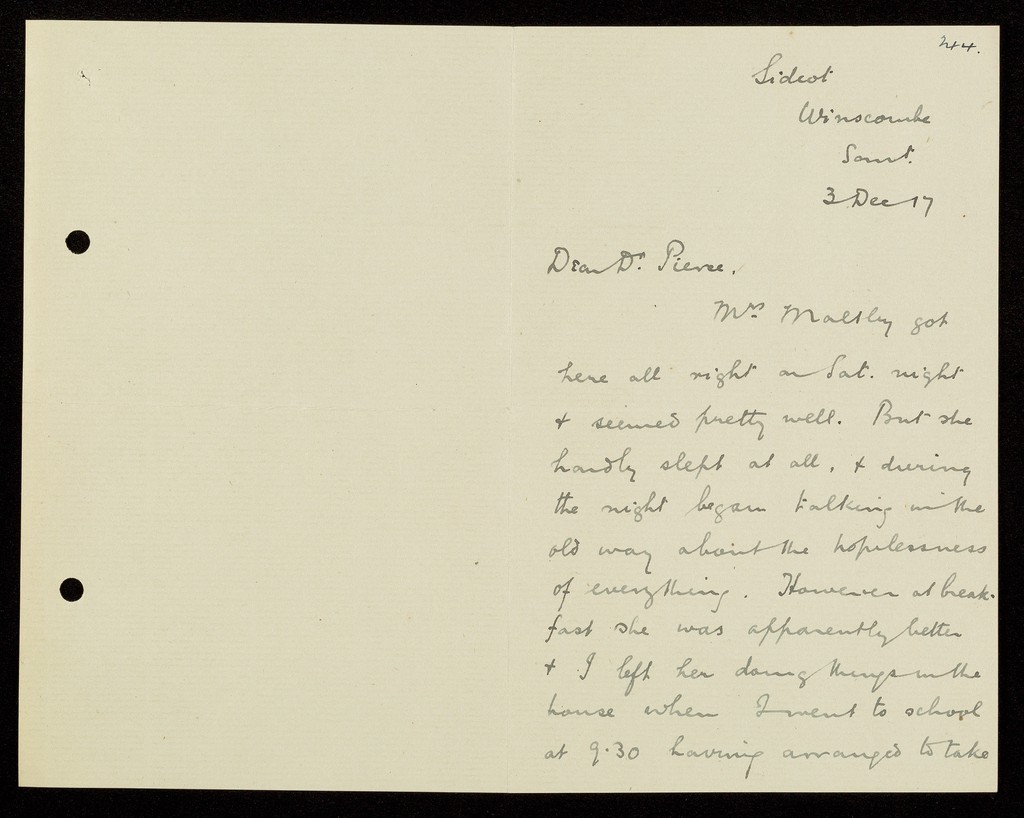 244.
Sidcot
Winscombe
Somt.
3 Dec 17
Dear Dr. Pierce,
Mrs Maltby got
here all right on Sat. night
& seemed pretty well. But she
hardly slept at all, & during
the night began talking in the
old way about the hopelessness
of everything. However at break-
fast she was apparently better
& I left her doing things in the
house when I went to school
at 9.30 having arranged to take